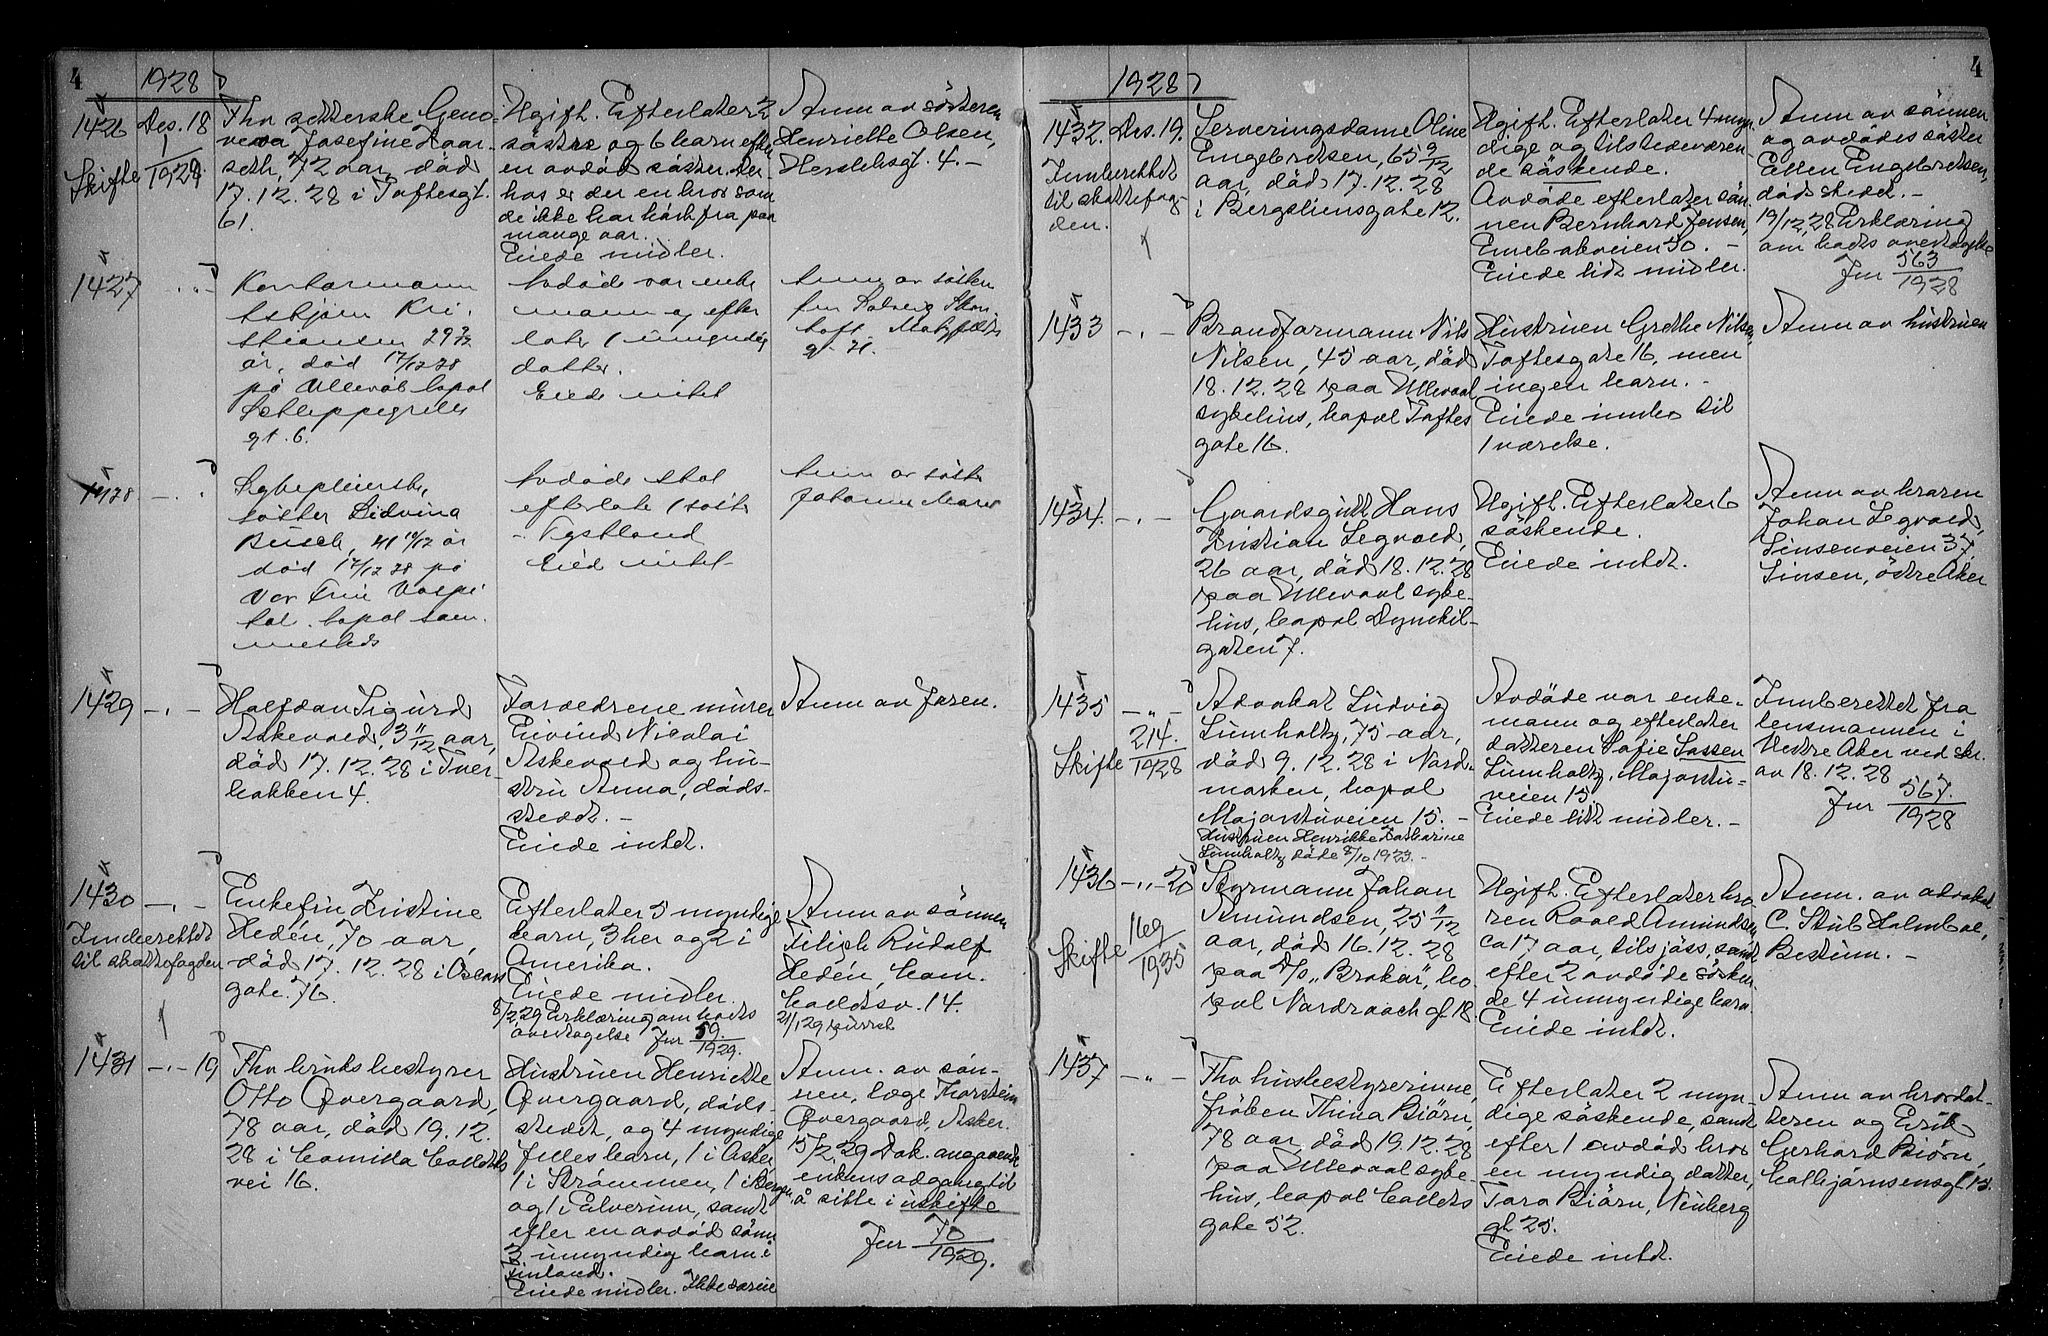 4
1928
1426 Des. 18
Skifte 1/1929
Fhv setterske Geno-
veva Josefine Haar-
seth, 72 aar, död
17.12.28 i Toftesgt.
61.
Ugift. Efterlater 2
søstre og 6 barn efter
en avdød søster. Der-
hos er der en bror som
de ikke har hørt fra paa
mange aar.
Eiede midler.
Anm av søsteren
Henriette Olsen,
Herslebsgt. 4. -
1427 - " -
Kontormann
Kri-
stiansen 29
år, død 17/12 28
på Ullevål bopel
Schleppegrells
gt. 6.
Avdøde var enke
mann og efter
later 1 umyndig
datter.
Eiede intet
Anm av søsteren
fru Solveig
1428 - " -
Sykepleierske,
søster Lidvina
Busch, 41 10/12 år
død 17/12 28 på
Vor Frue Hospi
tal. bopel sam-
mesteds
Avdøde skal
efterlate 1 søster
i Tyskland
Eied intet
Anm av søster
Johanne Marie
1429 - " -
Halfdan Sigurd
Askevold, 3 11/12 aar,
död 17.12.28 i Tver-
bakken 4.
Forældrene murer
Eivind Nicolai
Askevold og hu-
stru Anna, døds-
stedet. -
Eiede intet.
Anm av faren.
1430 - " -
Innberettet
til skattefogden
Enkefru Kristine
Hedén, 70 aar,
död 17.12.28 i Oscars
gate 76.
Efterlater 5 myndige
barn, 3 her og 2 i
Amerika.
Eiede midler.
8/2 29 Erklæring om bods
overtagelse Jnr 59/1929.
Anm av sønnen
Filiph Rudolf
Hedén, Cam.
Colletsv. 14.
21/1 29 purret
1431 - " - 19
Fhv bruksbestyrer
Otto Øvergaard,
78 aar, död 19.12.
28 i Camilla Colletts
vei 16.
Hustruen Henriette
Øvergaard, døds-
stedet, og 4 myndige
felles barn, 1 i Asker
1 i Strømmen, 1 i Bergen
og 1 i Elverum, samt
efter en avdød sønn
3 umyndig barn i
Finland.
Eiede midler. Ikke særeie
Anm. av søn-
nen, læge Thorstein
Øvergaard, Asker.
15/2 29 Dok. angaaende
enkens adgang til
å sitte i uskifte
Jnr 70/1929.
4
1928
1432. Des. 19.
Innberettet
til skattefog-
den.
Serveringsdame Oline
Engebretsen, 65 9/12
aar, död 17.12.28
i Bergsliensgate 12.
Ugift. Efterlater 4 myn
dige og tilstedeværen-
de søskende.
Avdøde efterlater søn
nen Bernhard Jensen,
Enebakveien 50. -
Eiede litt midler.
Anm av sönnen
og avdødes søster
Ellen Engebretsen,
dødsstedet. -
19/12 28 Erklæring
om bodts overtagelse
Jnr 563/1928
1433 - " -
Brandformann Nils
Nilsen, 45 aar, död
18.12.28 paa Ullevaal
sykehus, bopel Toftes
gate 16.
Hustruen Grethe Nilsen,
Toftesgate 16, men
ingen barn. -
Eiede innbo til
1 værelse.
Anm av hustruen
1434. - " -
Gaardsgutt Hans
Kristian Legvold,
26 aar, död 18.12.28
paa Ullevaal syke-
hus, bopel Dynekil-
gaten 7.
Ugift. Efterlater 6
søskende.
Eiede intet.
Anm av broren
Johan Legvold,
Sinsenveien 37,
Sinsen, østre Aker
1435 - " -
Skifte 214./1928
Advokat Ludvig
Lumholtz, 75 aar,
död 9.12.28 i Nord-
marken, bopel
Majorstuveien 15. -
Hustruen Henrikke Katharine
Lumholtz døde 2/10 1923. -
Avdøde var enke-
mann og efterlater
datteren Sofie Sassen
Lumholtz, Majorstu-
veien 15.
Eiede litt midler. -
Innberettet fra
lensmannen i
Vestre Aker ved skr.
av 18.12.28
Jnr 567./1928
1436 - " - 20
Skifte 169/1935
Styrmann Johan
Amundsen, 25 1/12
aar, död 16.12.28
paa D/S "Brokar", bo-
pel Nordraach gt 18.
Ugift. Efterlater bro
ren Roald Amundsen,
ca 17 aar, tilsjøss, samt
efter 2 avdøde søsken-
de 4 umyndige barn
Eiede intet.
Anm. av advokat
C. Stub Holmboe,
Bestum. -
1437 - " -
Fhv husbestyrerinne,
frøken Thina Biørn,
78 aar, död 19.12.28
paa Ullevaal syke-
hus, bopel Colletts
gate 52.
Efterlater 2 myn-
dige søskende, samt
efter 1 avdød bror
en myndig datter,
Tora Biørn, Neuberg
gt 25.
Eiede intet.
Anm av brordat-
teren og Erik
Gerhard Biørn,
Colbjørnsensgt 13.